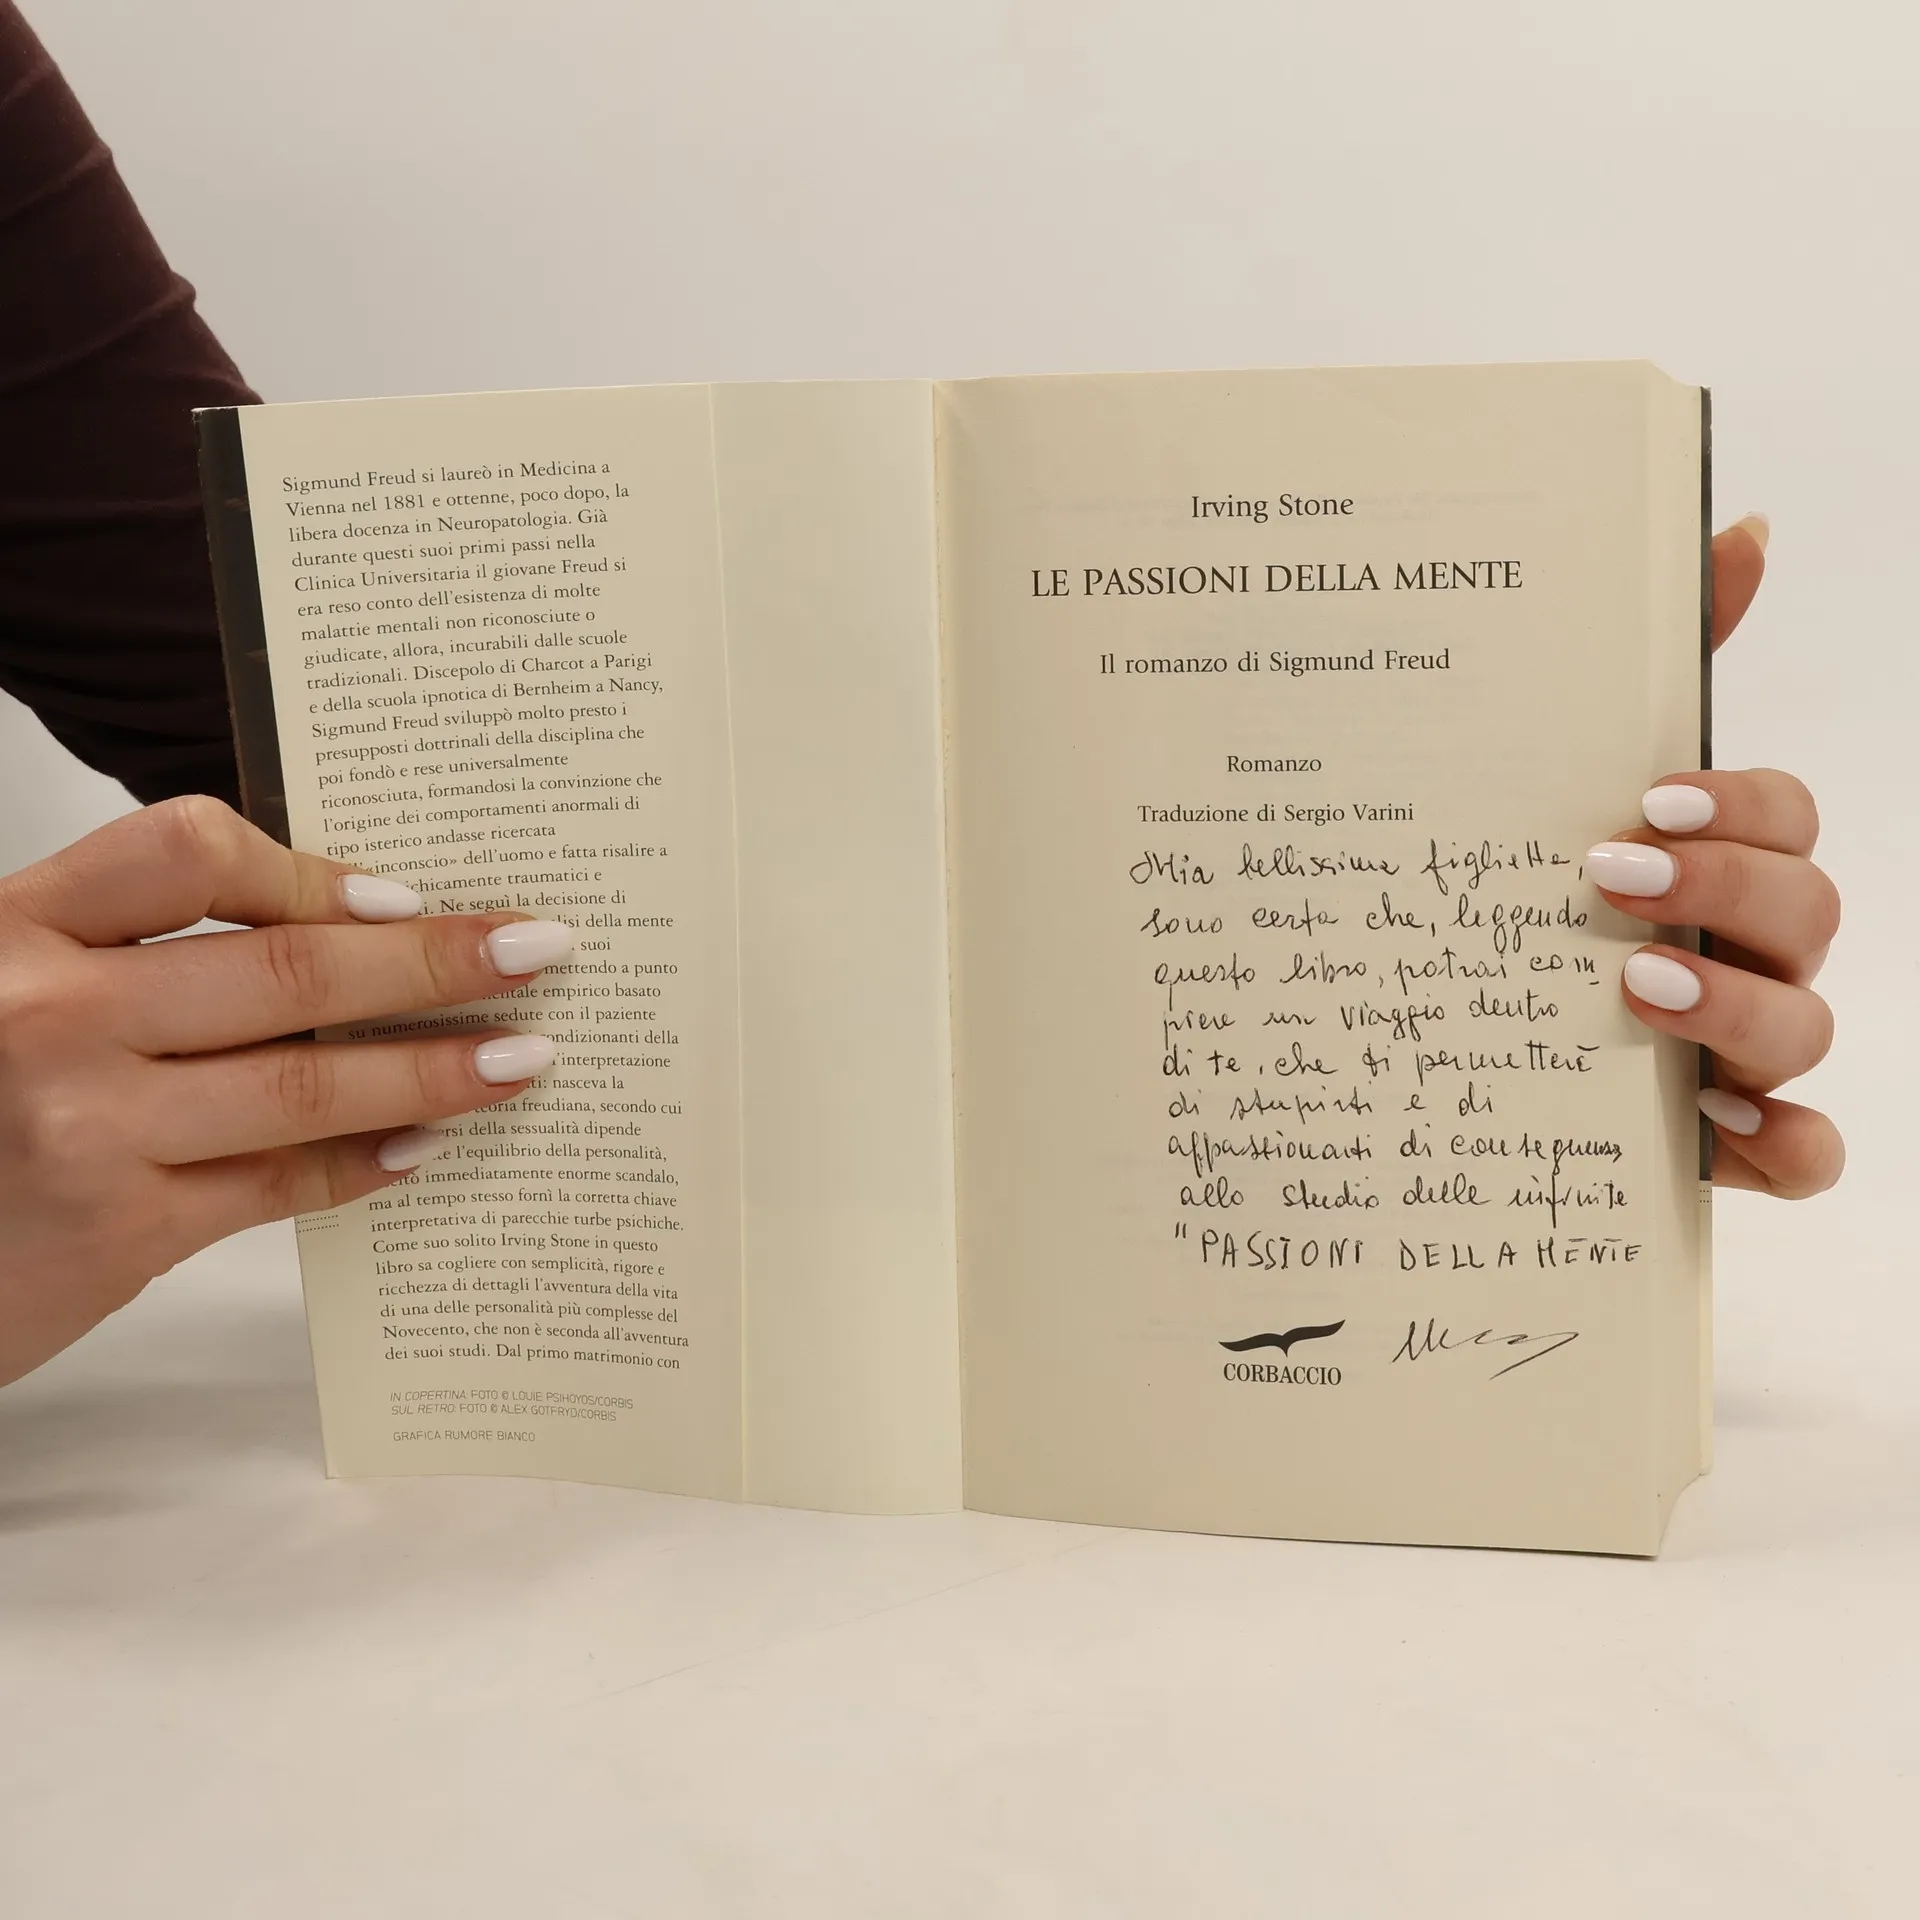 Sigmund Freud si laureò in Medicina a
Vienna nel 1881 e ottenne, poco dopo, la
libera docenza in Neuropatologia. Già
durante questi suoi primi passi nella
Clinica Universitaria il giovane Freud si
era reso conto dell'esistenza di molte
malattie mentali non riconosciute o
giudicate, allora, incurabili dalle scuole
tradizionali. Discepolo di Charcot a Parigi
e della scuola ipnotica di Bernheim a Nancy,
Sigmund Freud sviluppò molto presto i
presupposti dottrinali della disciplina che
poi fondò e rese universalmente
riconosciuta, formandosi la convinzione che
l'origine dei comportamenti anormali di
tipo isterico andasse ricercata
«inconscio» dell'uomo e fatta risalire a
traumatici e
Ne seguì la decisione di
della mente
suoi
mettendo a punto
empirico basato
su numerosissime sedute con il paziente
condizionanti della
l'interpretazione
nasceva la
teoria freudiana, secondo cui
della sessualità dipende
l'equilibrio della personalità,
immediatamente enorme scandalo,
ma al tempo stesso fornì la corretta chiave
interpretativa di parecchie turbe psichiche.
Come suo solito Irving Stone in questo
libro sa cogliere con semplicità, rigore e
ricchezza di dettagli l'avventura della vita
di una delle personalità più complesse del
Novecento, che non è seconda all'avventura
dei suoi studi. Dal primo matrimonio con
IN COPERTINA: FOTO © LOUIE PSIHOYOS/CORBIS
SUL RETRO: FOTO © ALEX GOTFRYD/CORBIS
GRAFICA RUMORE BIANCO
Irving Stone
LE PASSIONI DELLA MENTE
Il romanzo di Sigmund Freud
Romanzo
Traduzione di Sergio Varini
Mia bellissima figlietta,
sono certa che, leggendo
questo libro, potrai com
piere un viaggio dentro
di te, che ti permetterà
di stupirti e di
appassionarti di conseguenza
allo studio delle infinite
"PASSIONI DELLA MENTE
CORBACCIO